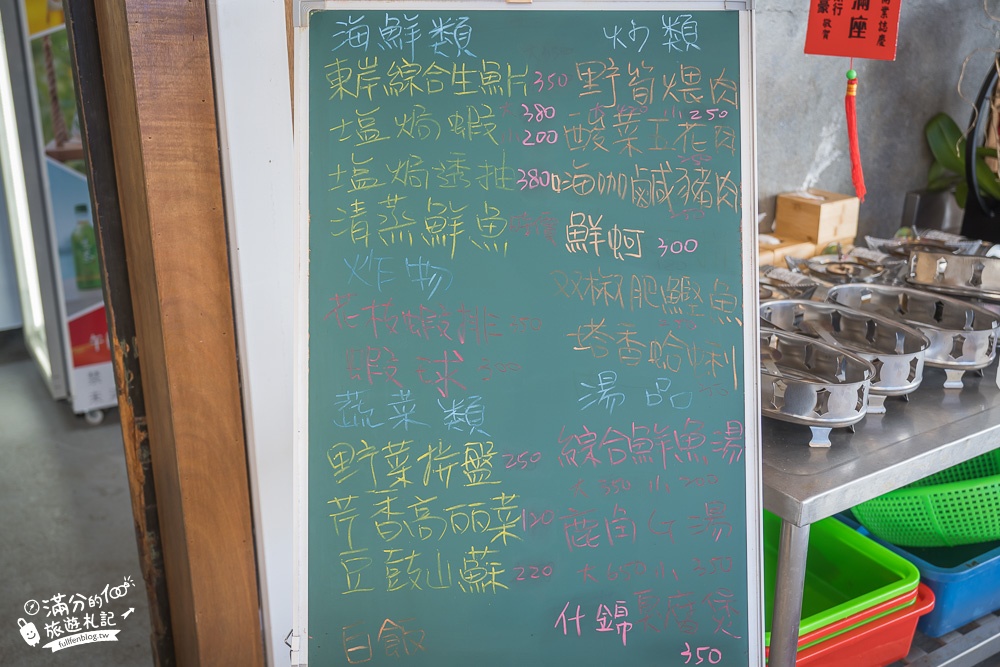 海鮮類
東岸綜合生魚片 350
塩焗蝦 大 380
小 200
塩焗透抽 380
清蒸鮮魚 時價
炸物
花枝蝦排
蝦球 300
蔬菜類
野菜拼盤 250
芹香高丽菜 120
豆鼓山蘇 220
白飯
炒類
野筍煨肉
小 250
酸菜五花肉
嗨咖鹹豬肉
鮮蚵 300
双椒肥鰹魚
塔香蛤蜊
湯品
綜合鮮魚湯
大 350 小
湯
大 小 350
什錦
煲
350
滿座
敬賀
滿分的
旅遊札記
fullfenblog.tw